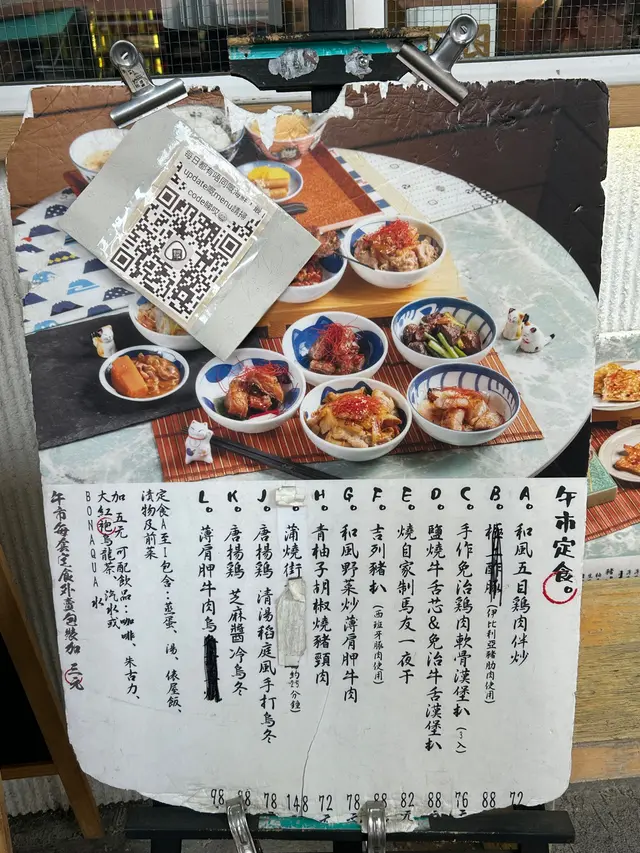 每日都有唔同嘅海鮮,最
update嘅menu請掃
code睇啦
午市定食。
A. 和風五目鶏肉伴炒 72
B. 極上酢豚(伊比利亞豬肋肉使用) 88
C. 手作免治鶏肉軟骨漢堡扒(3入) 76元
D. 鹽燒牛舌芯&免治牛舌漢堡扒 88
E. 燒自家制馬友一夜干 82元
F. 吉列豬扒(西班牙豚肉使用) 88
G. 和風野菜炒薄肩胛牛肉 78
H. 青柚子胡椒燒豬頸肉 72元
蒲燒 148
J. 唐揚鶏 清湯稻庭風手打烏冬 78
K. 唐揚鶏 芝麻醬冷烏冬 88
L. 薄肩胛牛肉烏 98
定食A至I包含:蒸蛋、湯、俵屋飯、
漬物及前菜
加五元可配飲品:咖啡、朱古力、
大紅袍烏龍茶 汽水或
BONAQUA水
午市每套定食外賣包裝加三元